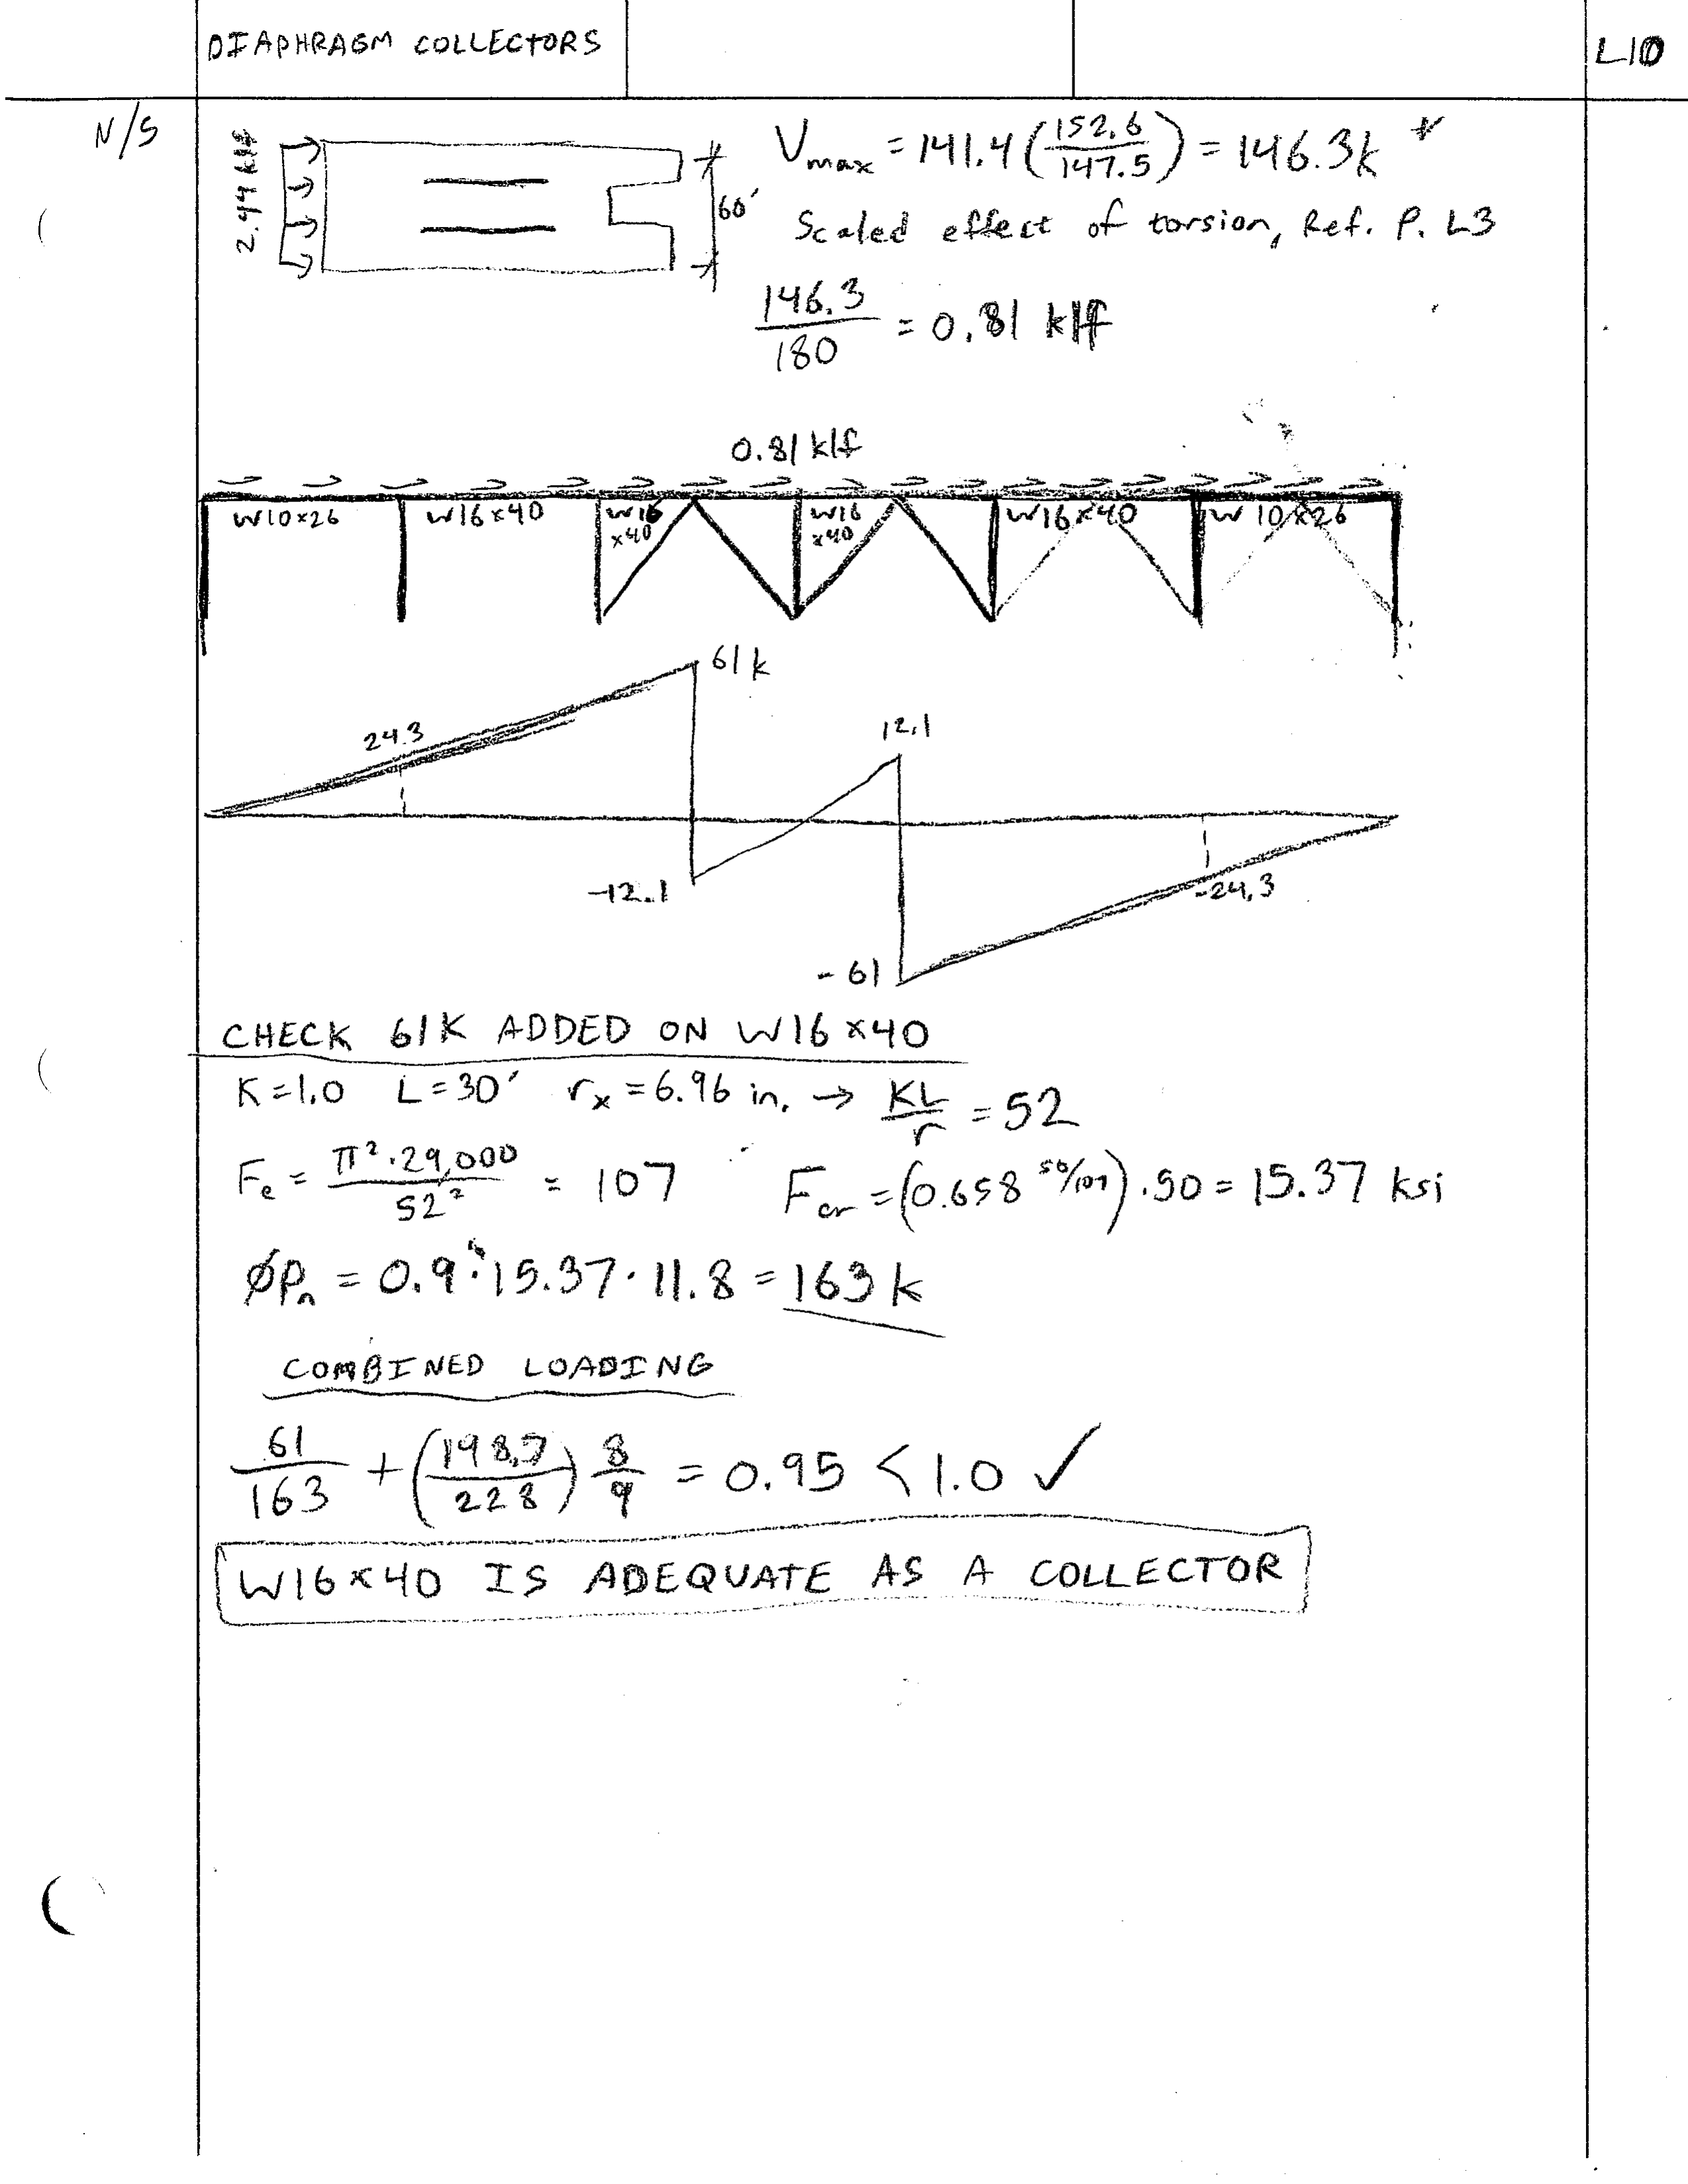 DIAPHRAGM COLLECTORS
L10
N/S
2.44 klf
60'
Vmax = 141.4 (152.6/147.5) = 146.3k
Scaled effect of torsion, Ref. P. L3
146.3/180 = 0.81 klf
0.81 klf
W10×26 W16×40 W16×40 W16×40 W16×40 W10×26
61k
24.3
12.1
-12.1
-24.3
-61
CHECK 61K ADDED ON W16×40
K=1.0 L=30' rx=6.96 in. → KL/r = 52
Fe = π²·29,000/52² = 107 Fcr = (0.658^50/107)·50 = 15.37 ksi
ØPn = 0.9·15.37·11.8 = 163k
COMBINED LOADING
61/163 + (198.7/228) 8/9 = 0.95 < 1.0 ✓
W16×40 IS ADEQUATE AS A COLLECTOR